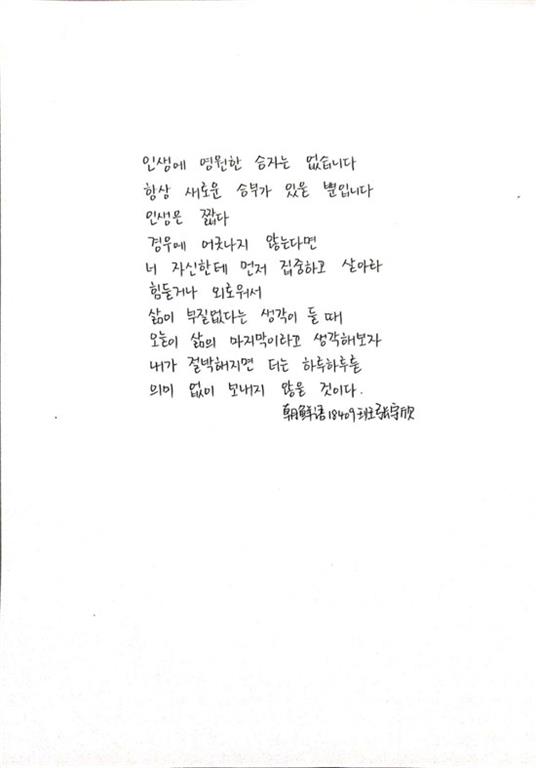 인생에 영원한 승자는 없습니다
항상 새로운 승부가 있을 뿐입니다
인생은 짧다
경우에 어긋나지 않는다면
너 자신한테 먼저 집중하고 살아라
힘들거나 외로워서
삶이 부질없다는 생각이 들 때
오늘이 삶의 마지막이라고 생각해보자
내가 절박해지면 더는 하루하루를
의미 없이 보내지 않을 것이다.
朝鲜语18409班张宇欣